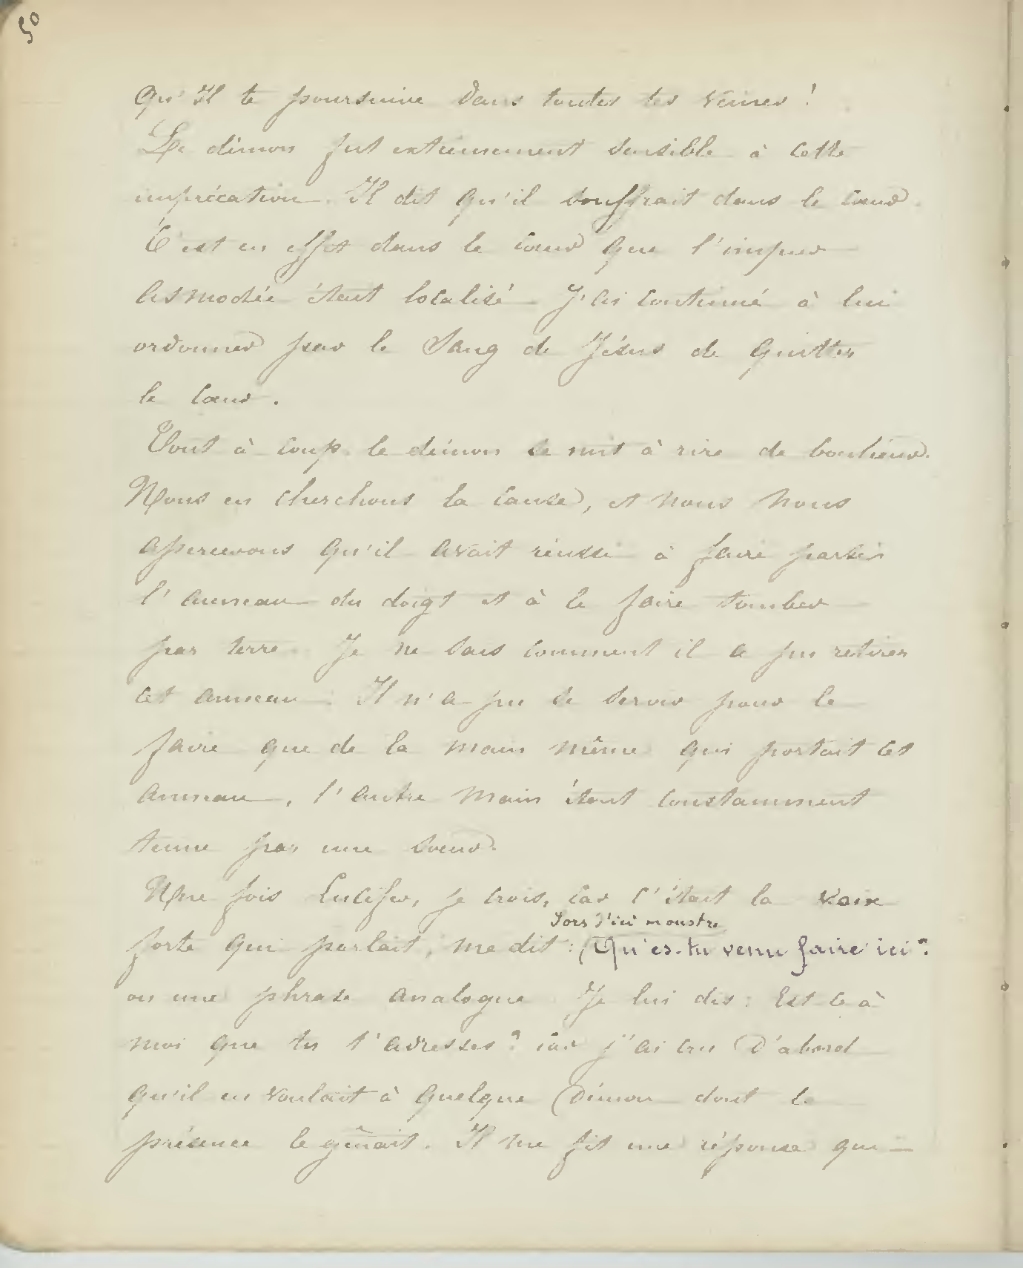 50
Qu'Il te poursuive dans toutes tes veines !
Le démon fut extrêmement sensible à cette
imprécation. Il dit qu'il souffrait dans le cœur.
C'est en effet dans le cœur que l'impur
Asmodée était localisé. J'ai continué à lui
ordonner par le Sang de Jésus de quitter
le cœur.
Tout à coup le démon se mit à rire de bonheur.
Nous en cherchons la cause, et nous nous
apercevons qu'il avait réussi à faire partir
l'anneau du doigt et à le faire tomber
par terre. Je ne sais comment il a pu retirer
cet anneau. Il n'a pu se servir pour le
faire que de la main même qui portait cet
anneau, l'autre main étant constamment
tenue par une sœur.
Une fois Lucifer, je crois, car c'était la voix
Sors d'ici monstre
forte qui parlait, me dit : Qu'es-tu venu faire ici ?
ou une phrase analogue. Je lui dis : Est-ce à
moi que tu t'adresses ? car j'ai cru d'abord
qu'il en voulait à quelque démon dont la
présence le gênait. Il me fit une réponse que